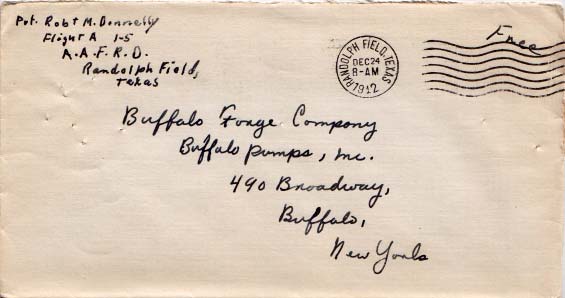 Pvt. Robt M. Donnelly
Flight A 1-5
A.A.F.R.D.
Randolph Field,
Texas
RANDOLPH FIELD, TEXAS
DEC 24
8-AM
1942
Free
Buffalo Forge Company
Buffalo Pumps, Inc.
490 Broadway,
Buffalo,
New York